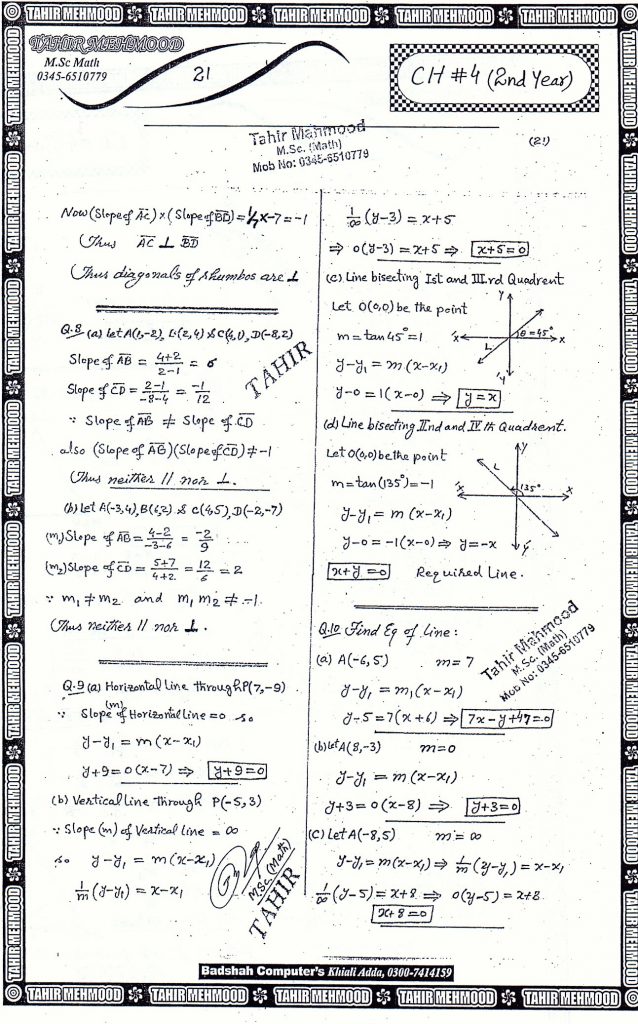 TAHIR MEHMOOD TAHIR MEHMOOD TAHIR MEHMOOD TAHIR MEHMOOD TAHIR MEHMOOD
TAHIR MEHMOOD
M.Sc Math
0345-6510779
21
CH #4 (2nd Year)
Tahir Mahmood
M.Sc. (Math)
Mob No: 0345-6510779
(21)
Now (Slope of AC) x (Slope of BD) = 1/7 x -7 = -1
Thus AC ⊥ BD
Thus diagonals of rhumbos are ⊥
Q.8 (a) Let A(1,-2), B(2,4) & C(4,1), D(-8,2)
Slope of AB = 4+2/2-1 = 6
Slope of CD = 2-1/-8-4 = -1/12
∵ Slope of AB ≠ Slope of CD
also (Slope of AB)(Slope of CD) ≠ -1
Thus neither // nor ⊥.
(b) Let A(-3,4), B(6,2) & C(4,5), D(-2,-7)
(m₁) Slope of AB = 4-2/-3-6 = -2/9
(m₂) Slope of CD = 5+7/4+2 = 12/6 = 2
∵ m₁ ≠ m₂ and m₁ m₂ ≠ -1.
Thus neither // nor ⊥.
Q.9 (a) Horizontal Line through P(7,-9)
∵ Slope (m) of Horizontal Line = 0 so
y-y₁ = m(x-x₁)
y+9 = 0(x-7) ⇒ y+9=0
(b) Vertical Line Through P(-5,3)
∵ Slope (m) of Vertical Line = ∞
so y-y₁ = m(x-x₁)
1/m (y-y₁) = x-x₁
TAHIR
M.Sc (Math)
TAHIR
1/∞ (y-3) = x+5
⇒ 0(y-3) = x+5 ⇒ x+5=0
(c) Line bisecting Ist and III.rd Quadrent
Let O(0,0) be the point
m = tan45° = 1
y-y₁ = m(x-x₁)
y-0 = 1(x-0) ⇒ y=x
Y
'x
L
θ=45°
x
'y
(d) Line bisecting IInd and IV th Quadrent.
Let O(0,0) be the point
m = tan(135°) = -1
y-y₁ = m(x-x₁)
y-0 = -1(x-0) ⇒ y=-x
x+y=0 Required Line.
Y
L
135°
'x
x
'y
Q.10 Find Eq of Line:
(a) A(-6,5) m=7
y-y₁ = m₁(x-x₁)
y-5 = 7(x+6) ⇒ 7x-y+47=0
Tahir Mahmood
M.Sc. (Math)
Mob No: 0345-6510779
(b) let A(8,-3) m=0
y-y₁ = m(x-x₁)
y+3 = 0(x-8) ⇒ y+3=0
(C) Let A(-8,5) m=∞
y-y₁ = m(x-x₁) ⇒ 1/m (y-y₁) = x-x₁
1/∞ (y-5) = x+8 ⇒ 0(y-5) = x+8
x+8=0
Badshah Computer's Khiali Adda, 0300-7414159
TAHIR MEHMOOD TAHIR MEHMOOD TAHIR MEHMOOD TAHIR MEHMOOD TAHIR MEHMOOD
TAHIR MEHMOOD TAHIR MEHMOOD TAHIR MEHMOOD TAHIR MEHMOOD TAHIR MEHMOOD TAHIR MEHMOOD TAHIR MEHMOOD TAHIR MEHMOOD
TAHIR MEHMOOD TAHIR MEHMOOD TAHIR MEHMOOD TAHIR MEHMOOD TAHIR MEHMOOD TAHIR MEHMOOD TAHIR MEHMOOD TAHIR MEHMOOD